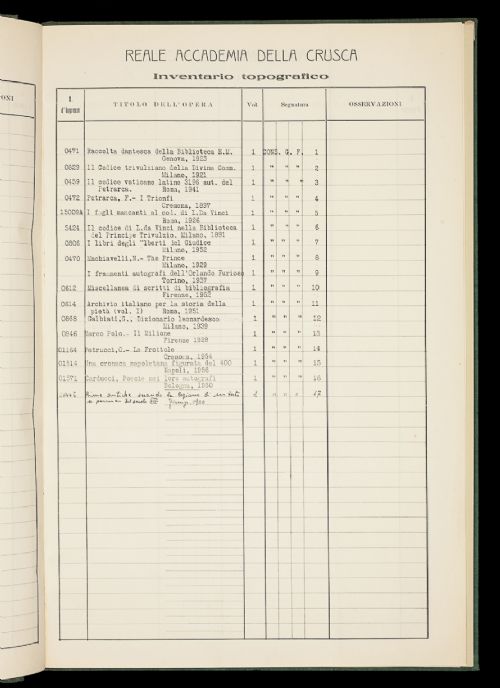 ONI
REALE ACCADEMIA DELLA CRUSCA
Inventario topografico
N. d'ingresso TITOLO DELL'OPERA Vol. Segnatura OSSERVAZIONI
0471 Raccolta dantesca della Biblioteca E.M. 1 CONS. G. F. 1
Genova, 1923
0829 Il Codice trivulziano della Divina Comm. 1 " " " 2
Milano, 1921
0459 Il codice vaticano latino 3196 aut. del 1 " " " 3
Petrarca. Roma, 1941
0472 Petrarca, F.- I Trionfi 1 " " " 4
Cremona, 1897
15009A I fogli mancanti al cod. di L.Da Vinci 1 " " " 5
Roma, 1926
5424 Il codice di L.da Vinci nella Biblioteca 1 " " " 6
del Principe Trivulzio. Milano, 1891
0806 I libri degli Uberti del Giudice 1 " " " 7
Milano, 1952
0470 Machiavelli,N.- The Prince 1 " " " 8
Milano, 1929
I frammenti autografi dell'Orlando Furioso 1 " " " 9
Torino, 1937
0612 Miscellanea di scritti di bibliografia 1 " " " 10
Firenze, 1952
0614 Archivio italiano per la storia della 1 " " " 11
pietà (vol. I) Roma, 1951
0868 Galbiati,G., Dizionario leonardesco 1 " " " 12
Milano, 1939
0846 Marco Polo.- Il Milione 1 " " " 13
Firenze 1928
01164 Petrucci,O.- Le Frottole 1 " " " 14
Cremona, 1954
01514 Una cronaca napoletana figurata del 400 1 " " " 15
Napoli, 1956
01571 Carducci, Poesie nei loro autografi 1 " " " 16
Bologna, 1950
Rime antiche secondo la lezione " " " 17